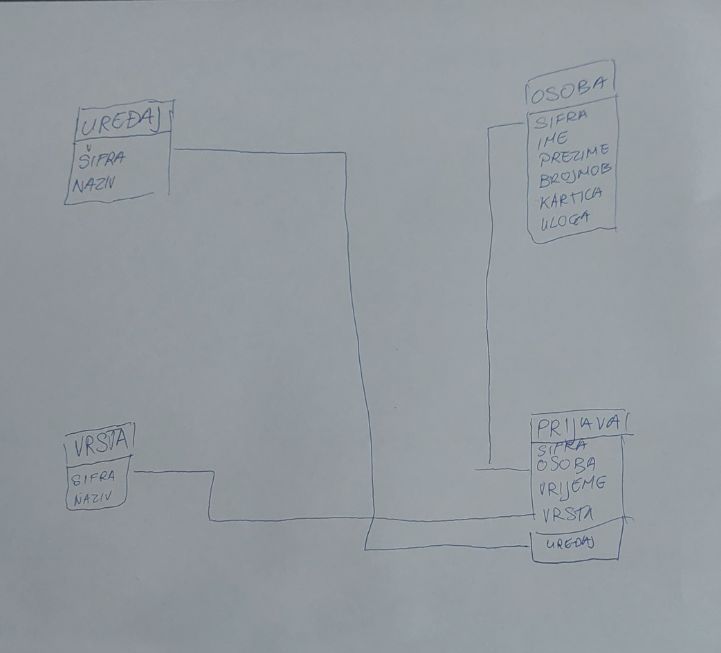 UREĐAJ
ŠIFRA
NAZIV
OSOBA
SIFRA
IME
PREZIME
BROJMOB
KARTICA
ULOGA
VRSTA
SIFRA
NAZIV
PRIJAVA
SIFRA
OSOBA
VRIJEME
VRSTA
UREĐAJ